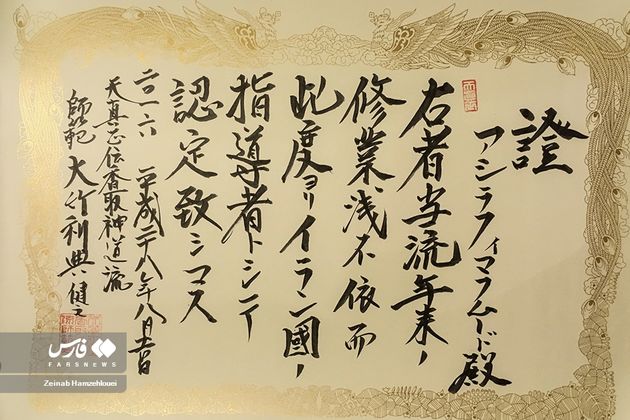 證
アシラフィマラムード殿
右者当流年来ノ
修業浅不依而
此度ヨリイラン國ノ
指導者トシテ
認定致シマス
二〇一六 平成二八年八月吉日
天真正伝香取神道流
師範 大竹利典健之
فارس
FARSNEWS
Zeinab Hamzehlouei